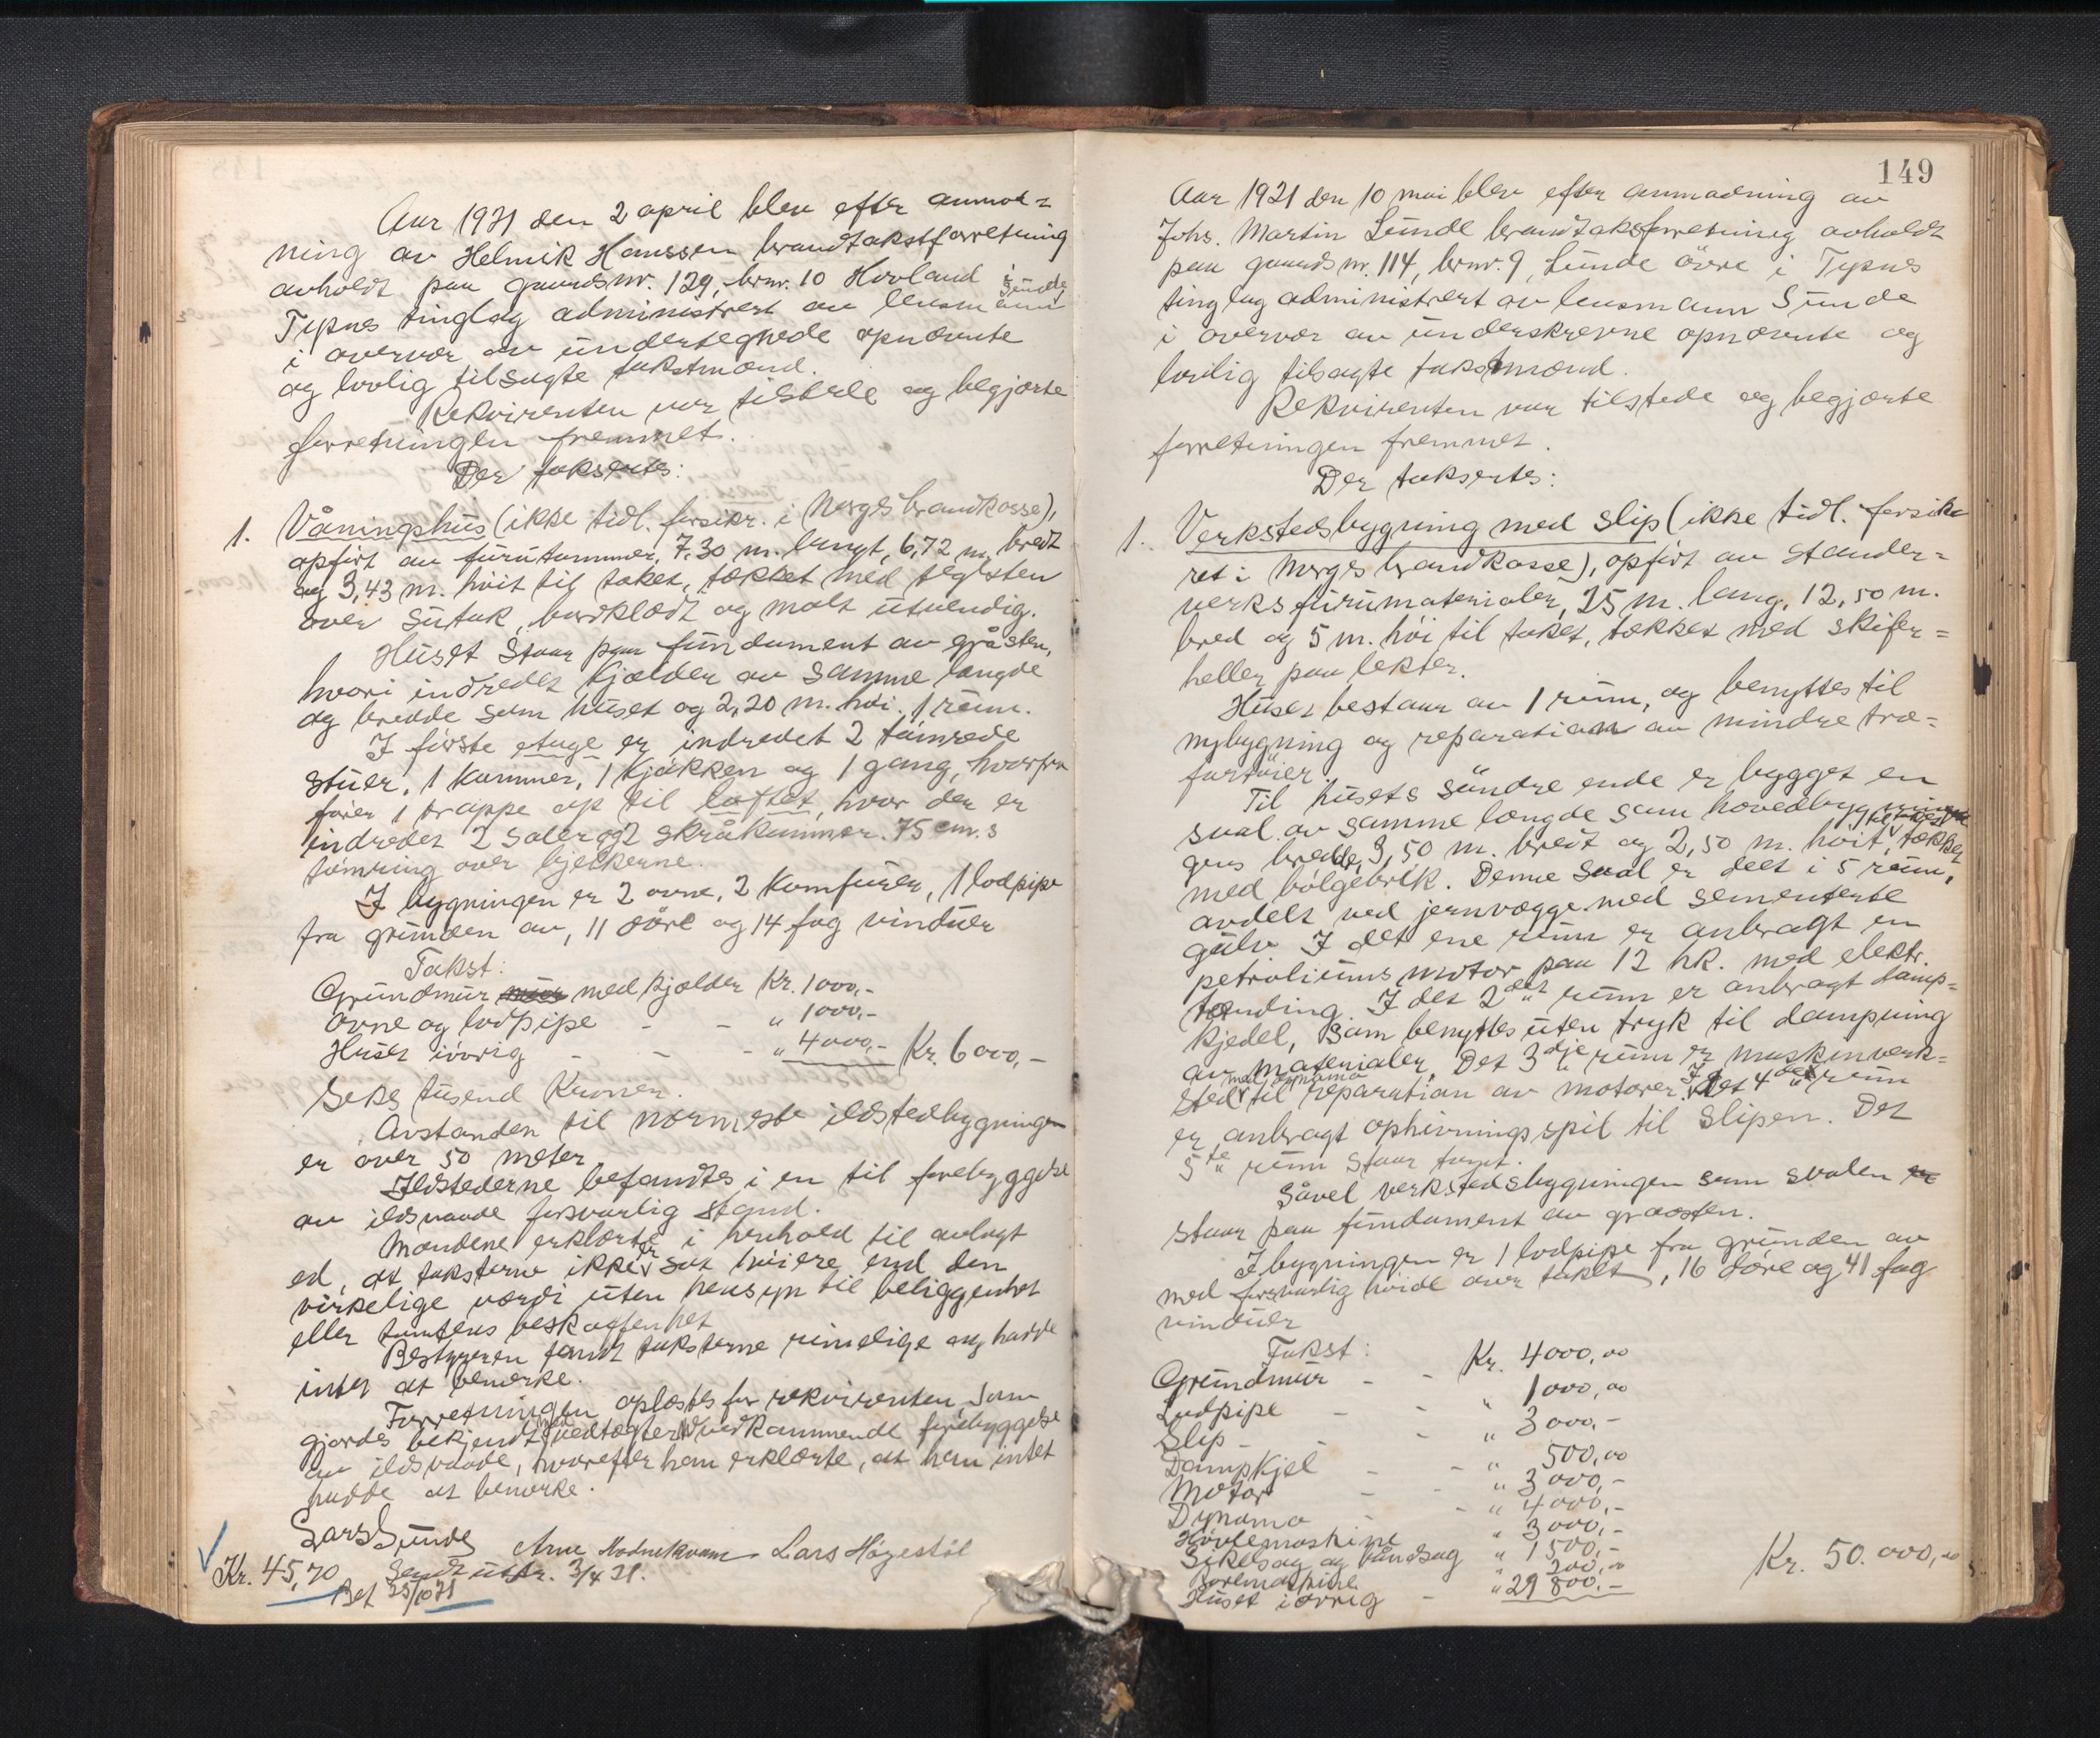 Aar 1921 den 2 april blev efter anmod=
ning av Helmik Hanssen brandtakstforretning
avholdt paa gaardsnr. 129, brnr. 10 Hovland i
Tysnes tinglag administrert av lensmann Sunde,
i overvær av undertegnede opnævnte
og lovlig tilsagte takstmænd.
Rekvirenten var tilstede og begjærte
forretningen fremmet.
Der takseртes:
1. Våningshus (ikke tidl. forsikr. i Norges brandkasse),
opført av furutømmer, 7,30 m. langt, 6,72 m. bredt
og 3,43 m. höit til taket, tækket med teglsten
over sutak, bordklædt og malt utvendig.
Huset staar paa fundament av gråsten,
hvori indredet kjælder av samme længde
og bredde som huset og 2,20 m. høi. 1 rum.
I første etage er indredet 2 tømrede
stuer, 1 kammer, 1 kjøkken og 1 gang, hvorfra
fører 1 trappe op til loftet, hvor der er
indredet 2 saler og 2 skråkammer. 75 cm.s
tømring over bjelkerne.
I bygningen er 2 ovne, 2 komfurer, 1 lodpipe
fra grunden av, 11 döre og 14 fag vinduer
Takst:
Grundmur med kjælder Kr. 1000,-
Ovne og lodpipe - - " 1000,-
Huset iövrig - - - " 4000,- Kr. 6000,-
Seks tusend Kroner.
Avstanden til nærmeste ildstedbygningen
er over 50 meter
Ildstederne befandtes i en til forebyggelse
av ildsvaade forsvarlig stand.
Mændene erklærte i henhold til avlagt
ed, at taksterne ikke er sat höiere end den
virkelige værdi uten hensyn til beliggenhet
eller tomtens beskaffenhet
Bestyreren fandt taksterne rimelige og hadde
intet at bemerke.
Forretningen oplæstes for rekvirenten som
gjordes bekjendt med vedtægter vedkommende forebyggelse
av ildsvaade, hvorefter han erklærte, at han intet
hadde at bemerke.
Lars Sunde Arne Lars Høgestøl
Kr. 45,70 Sendt utskr. 3/4 21.
Bet 25/10 21
149
Aar 1921 den 10 mai blev efter anmodning av
Johs. Martin Lunde brandtakstforretning avholdt
paa gaards nr. 114, brnr. 9, Lunde övre i Tysnes
tinglag administrert av lensmann Sunde
i overvær av underskrevne opnævnte og
lovlig tilsagte takstmænd.
Rekvirenten var tilstede og begjærte
forretningen fremmet.
Der taksertes:
1. Verkstedsbygning med slip (ikke tidl. forsik-
ret i Norges brandkasse), opført av stander=
verks furumaterialer, 25 m. lang, 12,50 m.
bred og 5 m. höi til taket, tækket med skifer=
heller paa lekter.
Huset bestaar av 1 rum, og benyttes til
nybygning og reparation av mindre træ=
fartöier.
Til husets søndre ende er bygget en
sval av samme længde som hovedbygnin
gens bredde, 3,50 m. bredt og 2,50 m. höit, tækket
med bölgeblik. Denne sval er delt i 5 rum,
avdelt ved jernvægge med sementerte
gulv I det ene rum er anbragt en
petroliums motor paa 12 hk. med elektr.
tænding. I det 2det rum er anbragt damp=
kjedel, som benyttes uten tryk til dampning
av materialer. Det 3dje rum er maskinverk=
sted med dynamo til reparation av motorer. I det 4de rum
er anbragt ophivnings spil til slipen. Det
5te rum staar tomt.
Såvel verkstedsbygningen som svalen
staar paa fundament av graasten.
I bygningen er 1 lodpipe fra grunden av
med forsvarlig höide over taket, 16 døre og 41 fag
vinduer
Takst:
Grundmur - - Kr. 4000,00
Lodpipe - - " 1000,00
Slip - - - " 3000,-
Dampkjel - - " 500,00
Motor - - " 3000,-
Dynamo - - " 4000,-
Høvlemaskine " 3000,-
Sirkelsag og båndsag " 1500,-
Boremaskine 200,00
Huset iøvrig - " 29 800,- Kr. 50.000,00